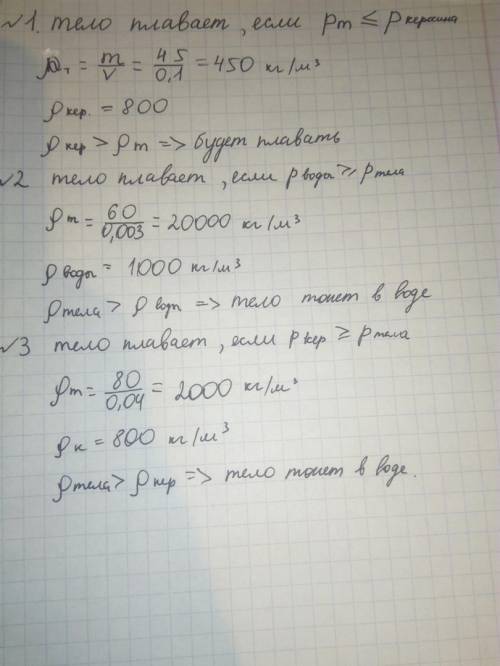 √1. тело плавает, если ρт ≤ ρкеросина
ρт = m/V = 45/0,1 = 450 кг/м³
ρкер. = 800
ρкер > ρт => будет плавать
√2 тело плавает, если ρводы ≥ ρтела
ρт = 60/0,003 = 20000 кг/м³
ρводы = 1000 кг/м³
ρтела > ρводы => тело тонет в воде
√3 тело плавает, если ρкер ≥ ρтела
ρт = 80/0,04 = 2000 кг/м³
ρк = 800 кг/м³
ρтела > ρкер => тело тонет в воде.